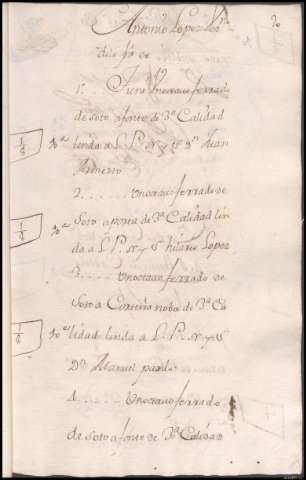 Antonio Lopez Vº
20
desta fª
1º.... Tiene Unoctavo ferrado
de soto afonte de 3ª Calidad
1/8 10ª linda a L. P. N. y S. Dn Juan
2.... unoctavo ferrado de
Soto aporta de 3ª Calidad lin
1/8 10ª da a L. P. N. y S. hilario Lopez
3.... unoctavo ferrado de
Soto a Cortiña noba de 3ª Ca
1/8 10ª lidad linda a L. P. N. y S.
Dn Manuel pardo
4.... unoctavo ferrado
de soto afonte de 3ª Calidad